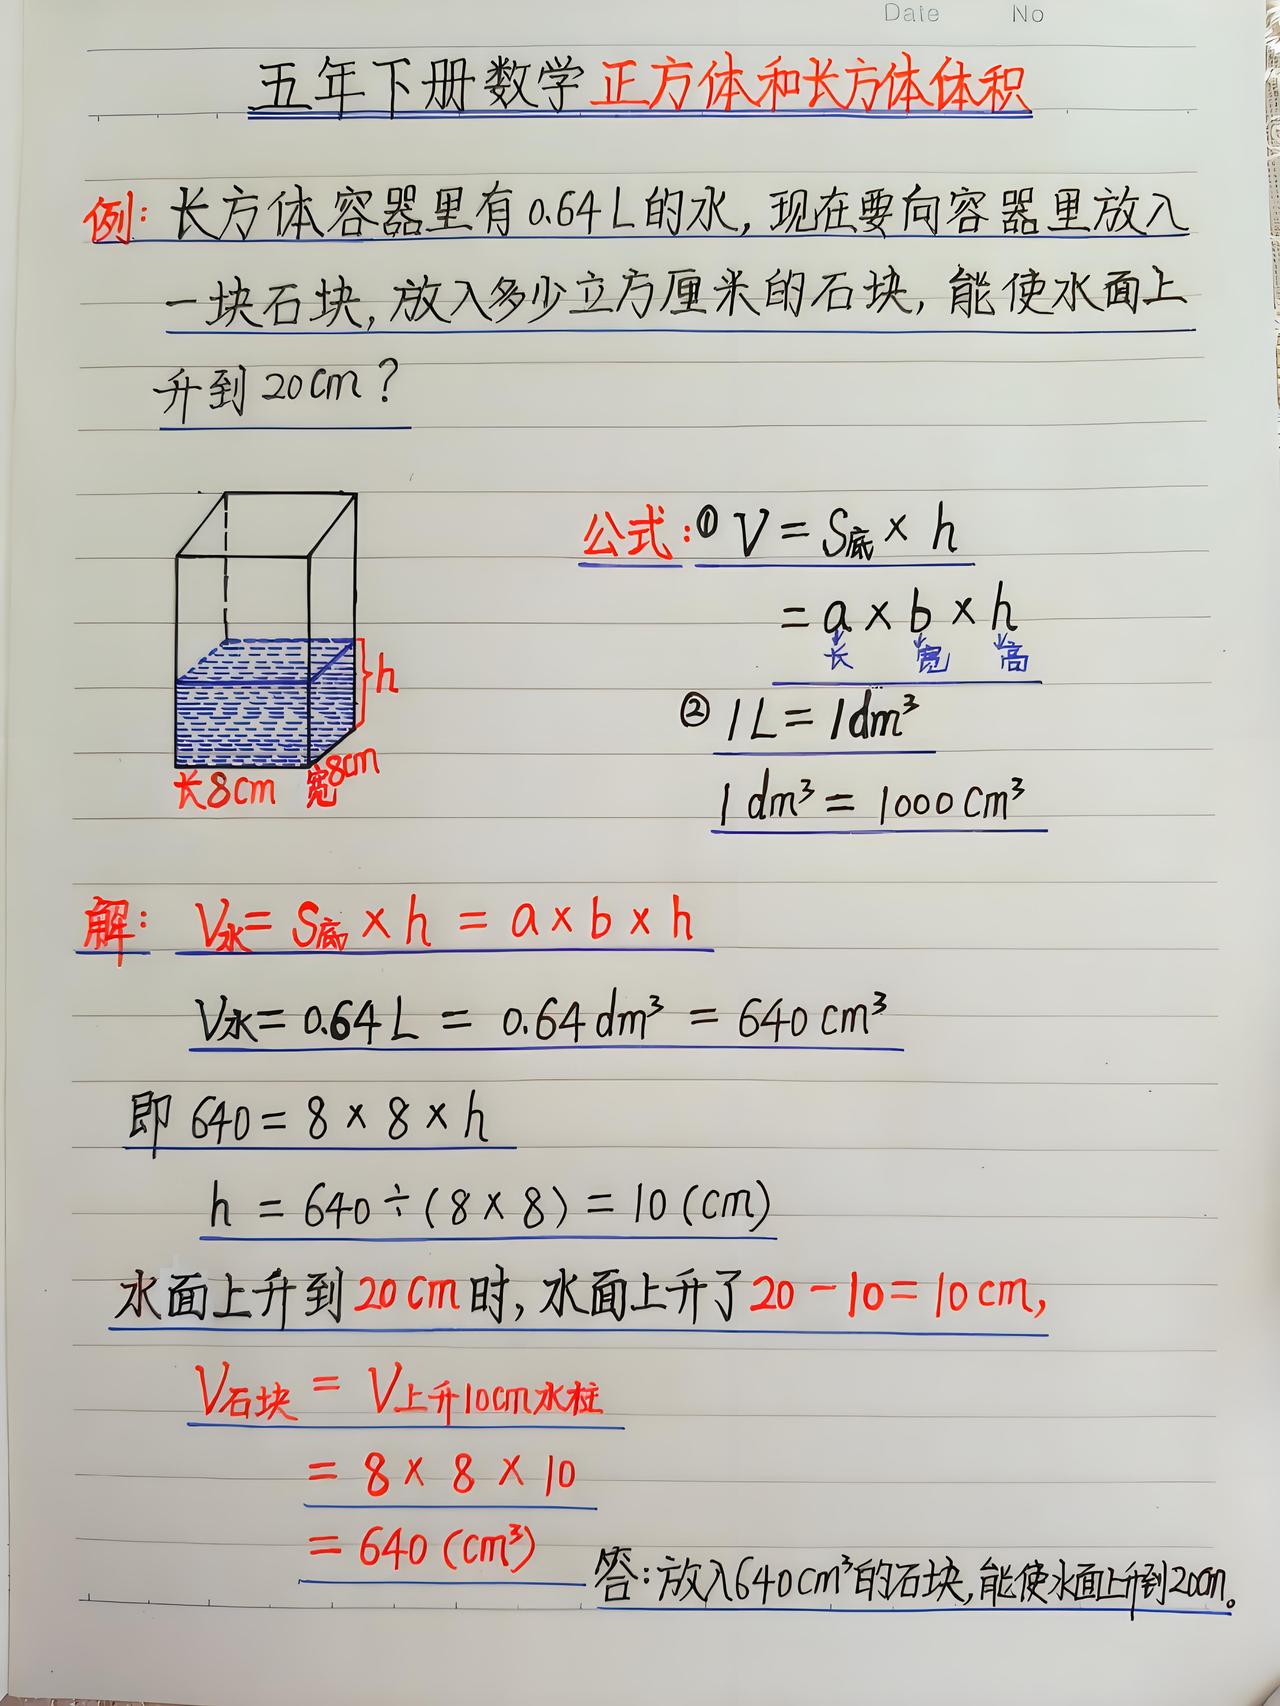 Date No
五年下册数学 正方体和长方体体积
例: 长方体容器里有0.64L的水, 现在要向容器里放入
一块石块, 放入多少立方厘米的石块, 能使水面上
升到20cm?
公式: ① V = S底 × h
= a × b × h
长 宽 高
h
② 1L = 1dm³
1dm³ = 1000cm³
长8cm 宽8cm
解: V水 = S底 × h = a × b × h
V水 = 0.64L = 0.64dm³ = 640cm³
即 640 = 8 × 8 × h
h = 640 ÷ (8 × 8) = 10 (cm)
水面上升到20cm时, 水面上升了20 - 10 = 10cm,
V石块 = V上升10cm水柱
= 8 × 8 × 10
= 640 (cm³)
答: 放入640cm³的石块, 能使水面上升到20cm。